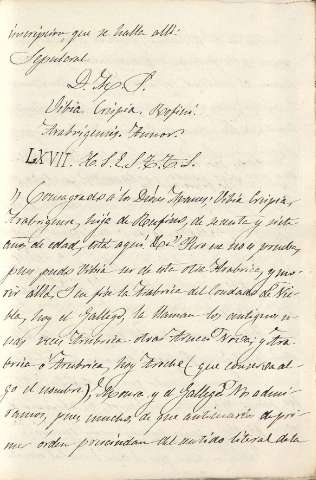 inscripcion, que se halla allí:
Sepulcral.
D. M. P.
Vibia. Crispia. Rufini.
Arabrigensis. Annor.
LXVII. H. S. E. S. T. T. L. S.
"Consagrado á los Dioses Manes: Vibia Crispia,
Arabrigense, hija de Rufino, de sesenta y siete
años de edad, está aquí &.ª" Pero no nos prueba,
pues pudo Vibia ser de esta otra Arabrica, y mo-
rir allá. En fin la Arabrica del Condado de Nie-
bla, hoy el Gallego, la llaman los antiguos u-
nas veces Arubrica. otras Arucci Novas; y Ara-
brica ó Arubrica, hoy Aroche (que conserva al-
go el nombre), Moura, y el Gallego. Nos admi-
ramos, pues, mucho, de que anticuarios de pri-
mer órden prescindan del sentido literal de la